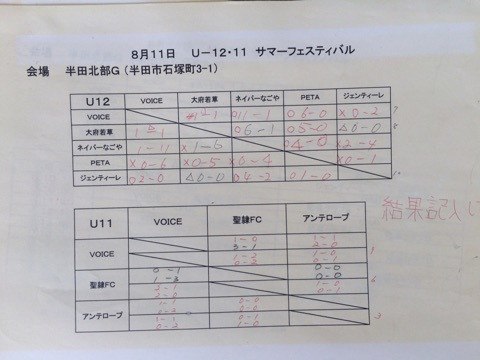 8月11日 U－12・11 サマーフェスティバル
会場 半田北部G（半田市石塚町3-1）
U12 VOICE 大府若草 ネイバーなごや PETA ジェンティーレ
VOICE 1－1 0 6－0 × 0－2
大府若草 1－1 0 6－1 0 5－0 △ 0－0
ネイバーなごや 1－11 × 1－6 0 4－0 × 2－4
PETA × 0－6 × 0－5 × 0－4 × 0－1
ジェンティーレ 0 2－0 △ 0－0 0 4－2 0 1－0
結果記入
U11 VOICE 聖隷FC アンテロープ
1－0 1－1
VOICE 3－1 2－0
1－2 1－0
0－2 0－1
0－1 0－0
聖隷FC 1－3 0－0
2－1 1－0
2－0 0－1
0－0
アンテロープ 0－0
1－1 0－1
0－2 1－0